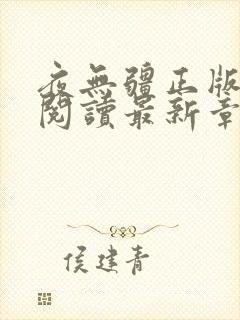 夜無疆正版
閱讀最新章
侯建青